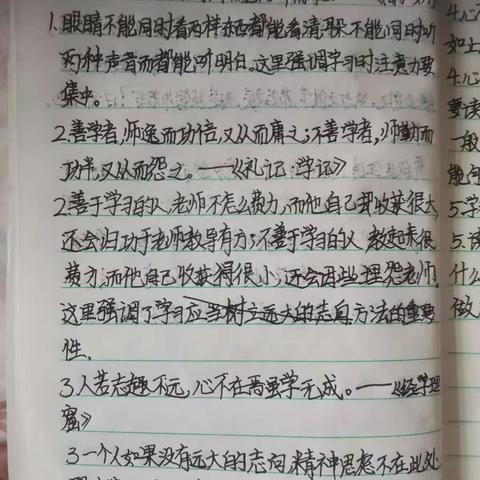 1.眼睛不能同时看两样东西都能看清,耳不能同时听
两种声音而都能听明白。这里强调学习时注意力要
集中。
2.善学者,师逸而功倍,又从而庸之;不善学者,师勤而
功半,又从而怨之。——《礼记·学记》
2.善于学习的人,老师不怎么费力,而他自己却收获很大,
还会归功于老师教导有方;不善于学习的人,教起来很
费力,而他自己收获得很小,还会因些埋怨老师。
这里强调了学习应当树立远大的志向方法的重要
性。
3.人若志趣不远,心不在焉虽学无成。——《经学理
窟》
3.一个人如果没有远大的志向,精神思想不在此处
4.心
如上
4.心
要读
一般
能
5.学
5.读
什么
做